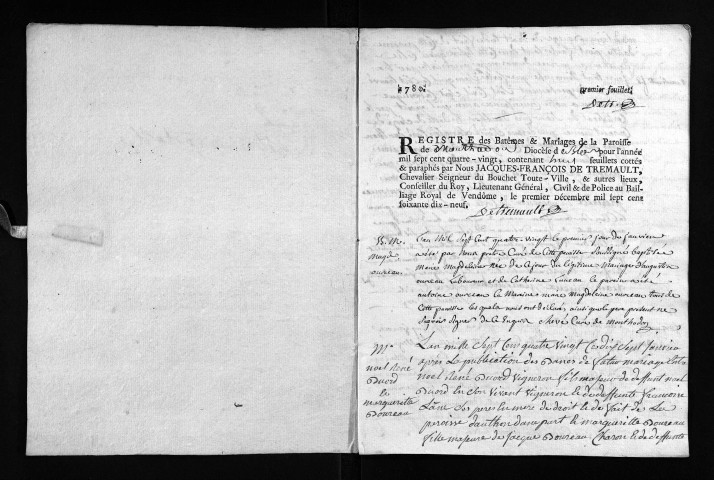 1780.
premier feuillet
Detr.
REGISTRE des Batêmes & Mariages de la Paroisse
de Monthodon Diocèse de Blois pour l'année
mil sept cent quatre-vingt, contenant huit feuillets cottés
& paraphés par Nous JACQUES-FRANÇOIS DE TREMAULT,
Chevalier Seigneur du Bouchet Toute-Ville, & autres lieux,
Conseiller du Roy, Lieutenant Général, Civil & de Police au Bail-
liage Royal de Vendôme, le premier Décembre mil sept cent
soixante dix-neuf.
Detremault
B. M.
magd.
oureau.
L'an mil sept cent quatre-vingt le premier jour de janvier
a été par nous prêtre Curé de cette paroisse soussigné baptisée
marie magdeleine née de ce jour du légitime mariage d'augustin
oureau Laboureur et de Catherine Luneau le parain a été
antoine oureau la maraine marie magdeleine oureau tous de
cette paroisse les quels nous ont déclaré ainsi que le pere present ne
sçavoir signer de ce enquis Curé de monthodon
M.
noel René
Duord
&
marguerite
Doureau
L'an mille sept cens quatre vingt le dix sept janvier
après la publication des bancs de futur mariage entre
noel René Duord vigneron fils majeur de deffunt noel
Duord en son vivant vigneron et de deffunte francoise
ses pere et mere de droit et de fait de la
paroisse d'authon d'une part et marguerite Doureau
fille majeure de jacque Doureau Charon et de deffunte